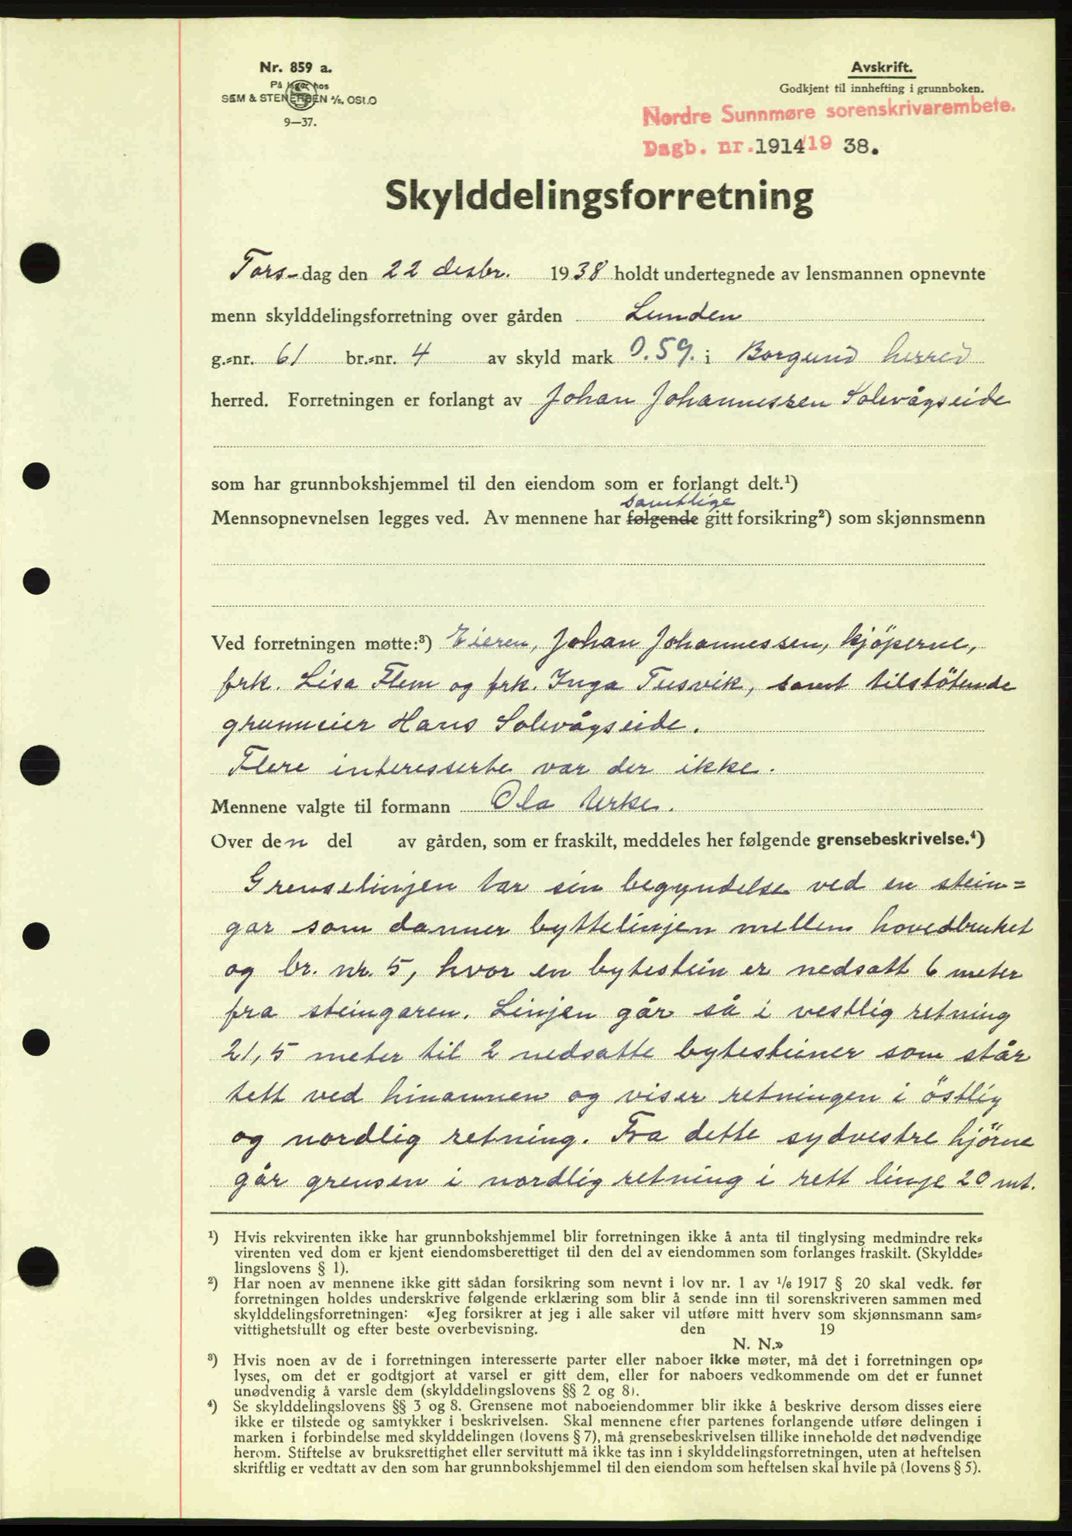 Nr. 859 a.
På lager hos
SEM & STENERSEN A/S. OSLO
9—37.
Avskrift.
Godkjent til innhefting i grunnboken.
Nordre Sunnmøre sorenskrivarembete.
Dagb. nr. 1914/19 38.
Skylddelingsforretning
Tors-dag den 22 desbr. 1938 holdt undertegnede av lensmannen opnevnte
menn skylddelingsforretning over gården Lunden
g.-nr. 61 br.-nr. 4 av skyld mark 0.59. i Borgund herred
herred. Forretningen er forlangt av Johan Johannessen Solevågseide
som har grunnbokshjemmel til den eiendom som er forlangt delt.¹)
samtlige
Mennsopnevnelsen legges ved. Av mennene har følgende gitt forsikring²) som skjønnsmenn
Ved forretningen møtte:³) Eieren, Johan Johannessen, kjöperne,
frk. Lisa Flem og frk. Inga Tusvik, samt tilstötende
grunneier Hans Solevågseide.
Flere interesserte var der ikke.
Mennene valgte til formann Ola Urke.
Over den del av gården, som er fraskilt, meddeles her følgende grensebeskrivelse.⁴)
Grenselinjen tar sin begyndelse ved en stein=
gar som danner byttelinjen mellem hovedbruket
og br. nr. 5, hvor en bytestein er nedsatt 6 meter
fra steingaren. Linjen går så i vestlig retning
21,5 meter til 2 nedsatte bytesteiner som står
tett ved hinannen og viser retningen i östlig
og nordlig retning. Fra dette sydvestre hjörne
går grensen i nordlig retning i rett linje 20 mt.
¹) Hvis rekvirenten ikke har grunnbokshjemmel blir forretningen ikke å anta til tinglysing medmindre rek-
virenten ved dom er kjent eiendomsberettiget til den del av eiendommen som forlanges fraskilt. (Skyldde-
lingslovens § 1).
²) Har noen av mennene ikke gitt sådan forsikring som nevnt i lov nr. 1 av 1/6 1917 § 20 skal vedk. før
forretningen holdes underskrive følgende erklæring som blir å sende inn til sorenskriveren sammen med
skylddelingsforretningen: «Jeg forsikrer at jeg i alle saker vil utføre mitt hverv som skjønnsmann sam-
vittighetsfullt og efter beste overbevisning. den 19
N. N.»
³) Hvis noen av de i forretningen interesserte parter eller naboer ikke møter, må det i forretningen op-
lyses, om det er godtgjort at varsel er gitt dem, eller for naboers vedkommende om det er funnet
unødvendig å varsle dem (skylddelingslovens §§ 2 og 8).
⁴) Se skylddelingslovens §§ 3 og 8. Grensene mot naboeiendommer blir ikke å beskrive dersom disses eiere
ikke er tilstede og samtykker i beskrivelsen. Skal mennene efter partenes forlangende utføre delingen i
marken i forbindelse med skylddelingen (lovens § 7), må grensebeskrivelsen tillike inneholde det nødvendige
herom. Stiftelse av bruksrettighet eller servitutt må ikke tas inn i skylddelingsforretningen, uten at heftelsen
skriftlig er vedtatt av den som har grunnbokshjemmel til den eiendom som heftelsen skal hvile på (lovens § 5).